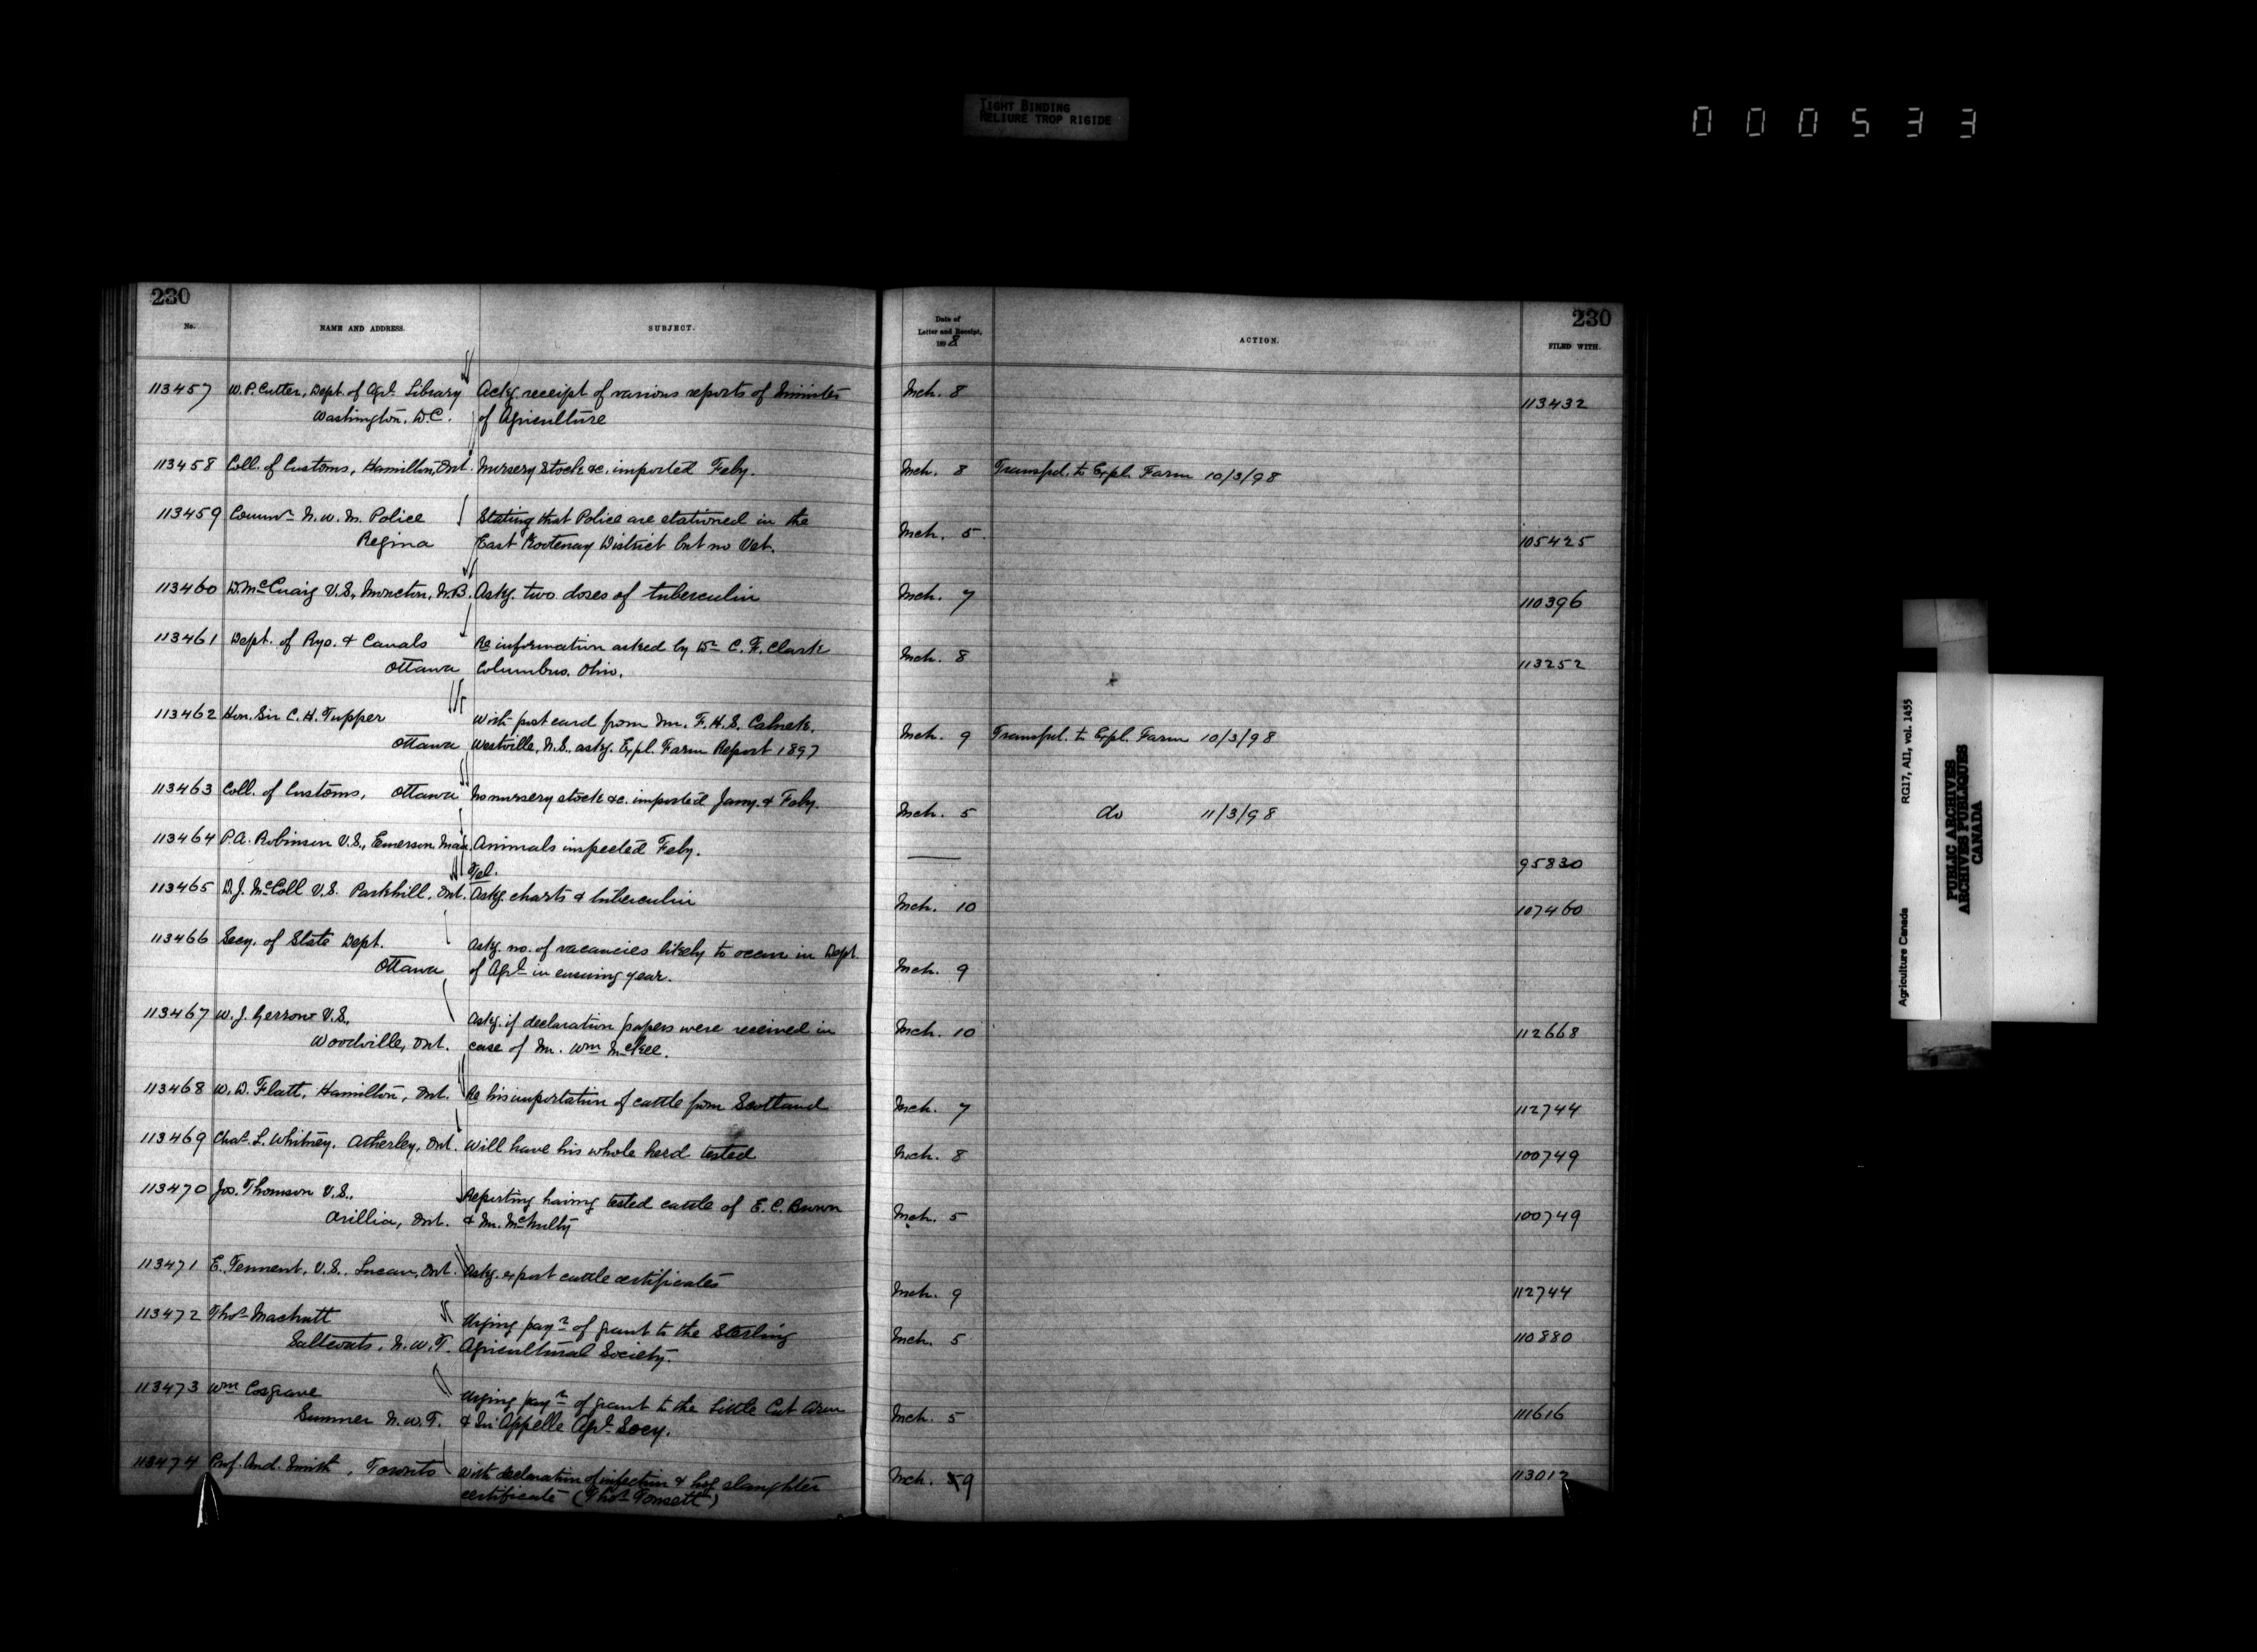 TIGHT BINDING
RELIURE TROP RIGIDE
000533
230
No.
NAME AND ADDRESS.
SUBJECT.
Date of
Letter and Receipt,
1898
ACTION.
230
FILED WITH.
113457 W. P. Cutter, Dept. of Agr. Library Ackg. receipt of various reports of Minister Mch. 8 113432
Washington, D.C. of Agriculture
113458 Coll. of Customs, Hamilton, Ont. Nursery Stock &c. imported Feby. Mch. 8 Transfd. to Expl. Farm 10/3/98
113459 Commr. N. W. M. Police Stating that Police are stationed in the Mch. 5 105425
Regina East Kootenay District but no Vet.
113460 D. McCuaig V.S., Moncton, N.B. Askg. two doses of tuberculin Mch. 7 110396
113461 Dept. of Rys. & Canals Re information asked by Dr. C. F. Clark Mch. 8 113252
Ottawa Columbus. Ohio.
113462 Hon. Sir C. H. Tupper With post card from Mr. F. H. S. Mch. 9 Transfd. to Expl. Farm 10/3/98
Ottawa Westville, N.S., askg. Expl. Farm Report 1897
113463 Coll. of Customs, Ottawa No nursery stock &c. imported Jany. & Feby. Mch. 5 do 11/3/98
113464 P. A. Robinson V.S., Emerson Man. Animals inspected Feby. — 95830
Tel.
113465 D. J. McColl V.S. Parkhill, Ont. Askg. charts & tuberculin Mch. 10 107460
113466 Secy. of State Dept. Askg. no. of vacancies likely to occur in Dept. Mch. 9
Ottawa of Agr. in ensuing year.
113467 W. J. Gerrow V.S., Askg. if declaration papers were received in Mch. 10 112668
Woodville, Ont. case of Mr. Wm. McKee.
113468 W. D. Flatt, Hamilton, Ont. Re his importation of cattle from Scotland Mch. 7 112744
113469 Chas. L. Whitney, Atherley, Ont. Will have his whole herd tested Mch. 8 100749
113470 Jos. Thomson V.S., Reporting having tested cattle of E. C. Brown Mch. 5 100749
Orillia, Ont. & Mr. McNulty
113471 E. Tennent, V.S., Lucan, Ont. Askg. export cattle certificates Mch. 9 112744
113472 Thos. Macnutt Urging payt. of grant to the Sterling Mch. 5 110880
Saltcoats, N.W.T. Agricultural Society.
113473 Wm. Cosgrave Urging payt. of grant to the Little Cut Arm Mch. 5 111616
Sumner N.W.T. & Qu'Appelle Agr. Socy.
113474 Prof. And. Smith, Toronto With declaration of infection & hog slaughter Mch. 9 113012
certificate (Thos. )
Agriculture Canada RG17, AII, vol. 1455
PUBLIC ARCHIVES
ARCHIVES PUBLIQUES
CANADA